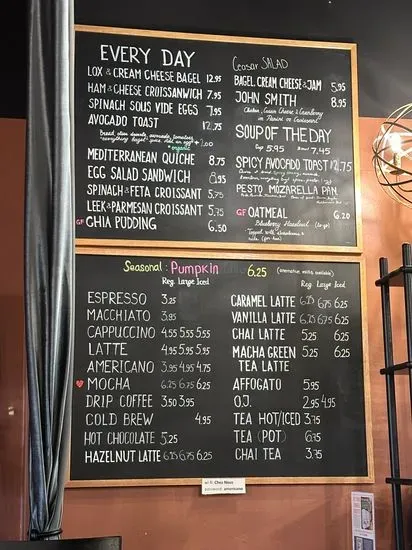 EVERY DAY
LOX & CREAM CHEESE BAGEL 12.95
HAM & CHEESE CROISSANWICH 7.95
SPINACH SOUS VIDE EGGS 7.95
AVOCADO TOAST 12.75
organic
MEDITERRANEAN QUICHE 8.75
EGG SALAD SANDWICH 8.95
SPINACH & FETA CROISSANT 5.75
LEEK & PARMESAN CROISSANT 5.75
GF CHIA PUDDING 6.50
Ceasar SALAD
BAGEL, CREAM CHEESE & JAM 5.95
JOHN SMITH 8.95
Chicken, Cream Cheese & Cranberry
on Panini or Croissant
SOUP OF THE DAY
Cup 5.95 Bowl 7.45
SPICY AVOCADO TOAST 12.75
PESTO MOZARELLA PAN.
GF OATMEAL 6.20
Blueberry Hazelnut
Seasonal: Pumpkin 6.25 (alternative milks available)
Reg. Large Iced
ESPRESSO 3.25
MACCHIATO 3.95
CAPPUCCINO 4.55 5.55 5.55
LATTE 4.95 5.95 5.95
AMERICANO 3.95 4.95 4.75
MOCHA 6.25 6.75 6.25
DRIP COFFEE 3.50 3.95
COLD BREW 4.95
HOT CHOCOLATE 5.25
HAZELNUT LATTE 6.25 6.75 6.25
Reg. Large Iced
CARAMEL LATTE 6.25 6.75 6.25
VANILLA LATTE 6.25 6.75 6.25
CHAI LATTE 5.25 6.25
MACHA GREEN 5.25 6.25
TEA LATTE
AFFOGATO 5.95
O.J. 2.95 4.95
TEA HOT/ICED 3.75
TEA (POT) 6.75
CHAI TEA 3.75
wi-fi: Chez Nous
password: americano